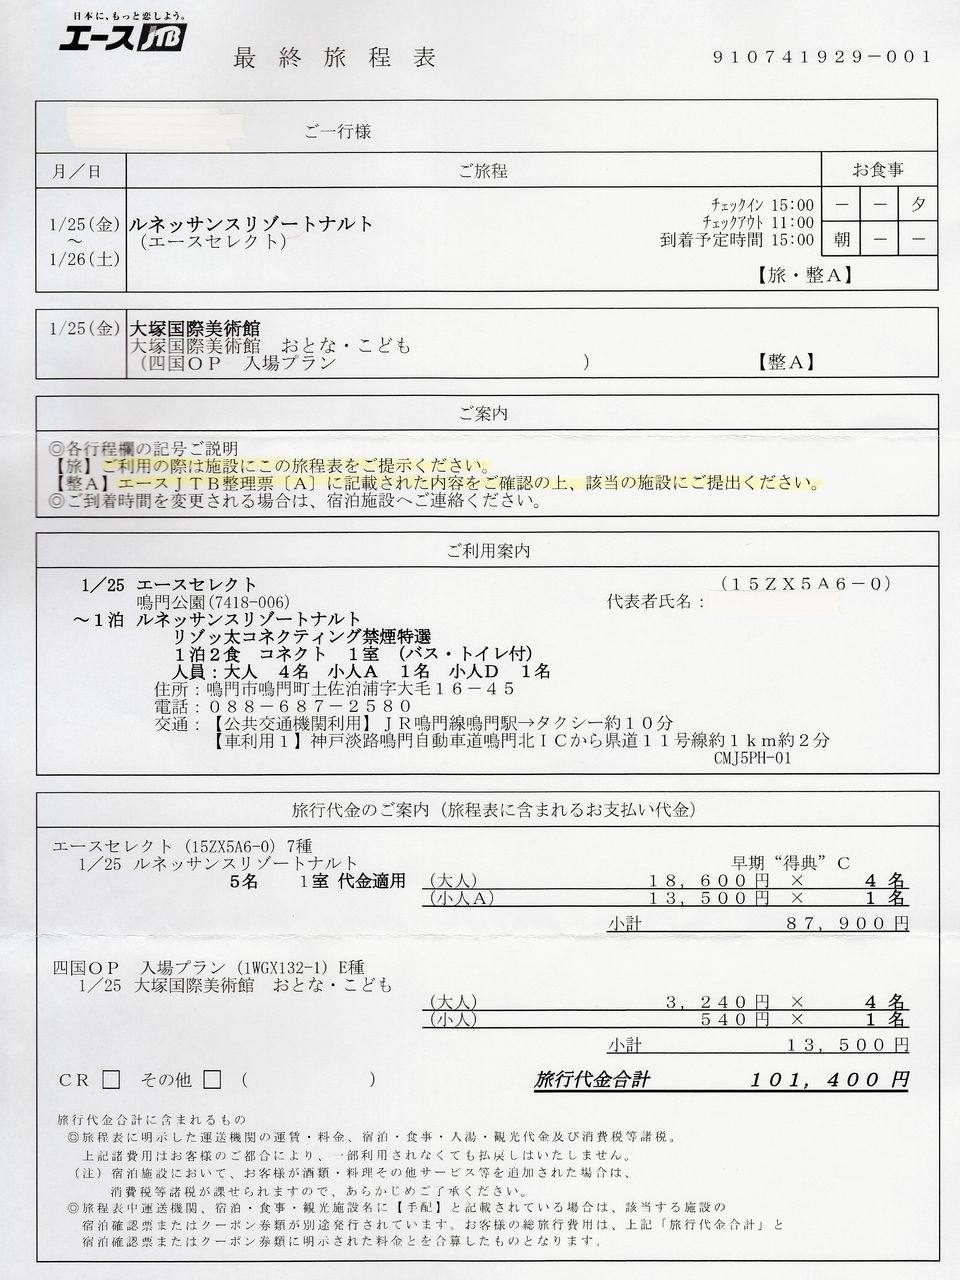 日本に、もっと恋しよう。
エースJTB
最終旅程表
910741929-001
ご一行様
月／日 ご旅程 お食事
1/25(金) ルネッサンスリゾートナルト チェックイン 15:00 － － 夕
～ (エースセレクト) チェックアウト 11:00
1/26(土) 到着予定時間 15:00 朝 － －
【旅・整A】
1/25(金) 大塚国際美術館
大塚国際美術館 おとな・こども
(四国OP 入場プラン ) 【整A】
ご案内
◎各行程欄の記号ご説明
【旅】ご利用の際は施設にこの旅程表をご提示ください。
【整A】エースJTB整理票〔A〕に記載された内容をご確認の上、該当の施設にご提出ください。
◎ご到着時間を変更される場合は、宿泊施設へご連絡ください。
ご利用案内
1／25 エースセレクト (15ZX5A6-0)
鳴門公園(7418-006) 代表者氏名：
～1泊 ルネッサンスリゾートナルト
リゾッ太コネクティング禁煙特選
1泊2食 コネクト 1室 (バス・トイレ付)
人員：大人 4名 小人A 1名 小人D 1名
住所：鳴門市鳴門町土佐泊浦字大毛16－45
電話：088－687－2580
交通：【公共交通機関利用】JR鳴門線鳴門駅→タクシー約10分
【車利用1】神戸淡路鳴門自動車道鳴門北ICから県道11号線約1km約2分
CMJ5PH-01
旅行代金のご案内（旅程表に含まれるお支払い代金）
エースセレクト (15ZX5A6-0) 7種
1／25 ルネッサンスリゾートナルト 早期“得典”C
5名 1室 代金適用 (大人) 18,600円 × 4名
(小人A) 13,500円 × 1名
小計 87,900円
四国OP 入場プラン (1WGX132-1) E種
1／25 大塚国際美術館 おとな・こども
(大人) 3,240円 × 4名
(小人) 540円 × 1名
小計 13,500円
CR □ その他 □ ( ) 旅行代金合計 101,400円
旅行代金合計に含まれるもの
◎旅程表に明示した運送機関の運賃・料金、宿泊・食事・入湯・観光代金及び消費税等諸税。
上記諸費用はお客様のご都合により、一部利用されなくても払戻しはいたしません。
（注）宿泊施設において、お客様が酒類・料理その他サービス等を追加された場合は、
消費税等諸税が課せられますので、あらかじめご了承ください。
◎旅程表中運送機関、宿泊・食事・観光施設名に【手配】と記載されている場合は、該当する施設の
宿泊確認票またはクーポン券類が別途発行されています。お客様の総旅行費用は、上記「旅行代金合計」と
宿泊確認票またはクーポン券類に明示された料金とを合算したものとなります。